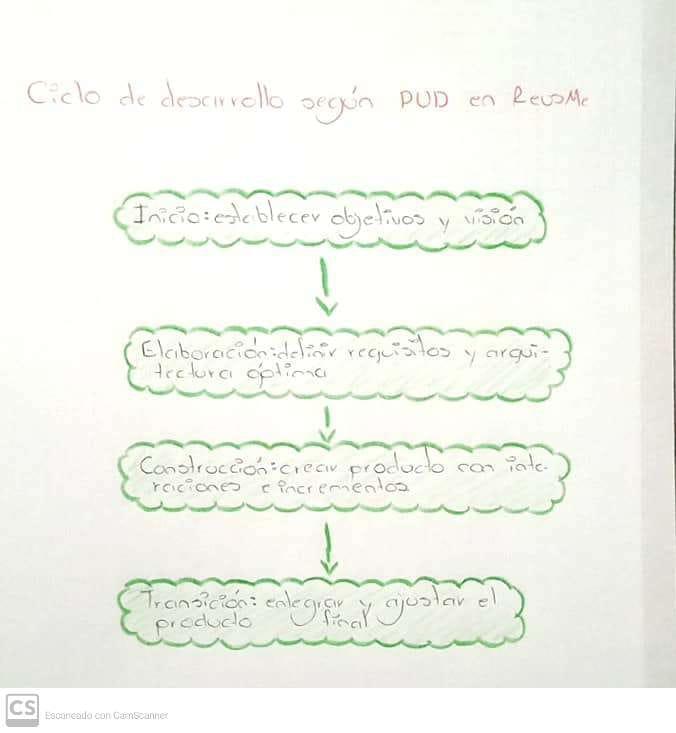 Ciclo de desarrollo según PUD en ReusMe
Inicio: establecer objetivos y visión
Elaboración: definir requisitos y arqui-
tectura óptima
Construcción: crear producto con inte-
raciones e incrementos
Transición: entegrar y ajustar el
producto final
CS Escaneado con CamScanner